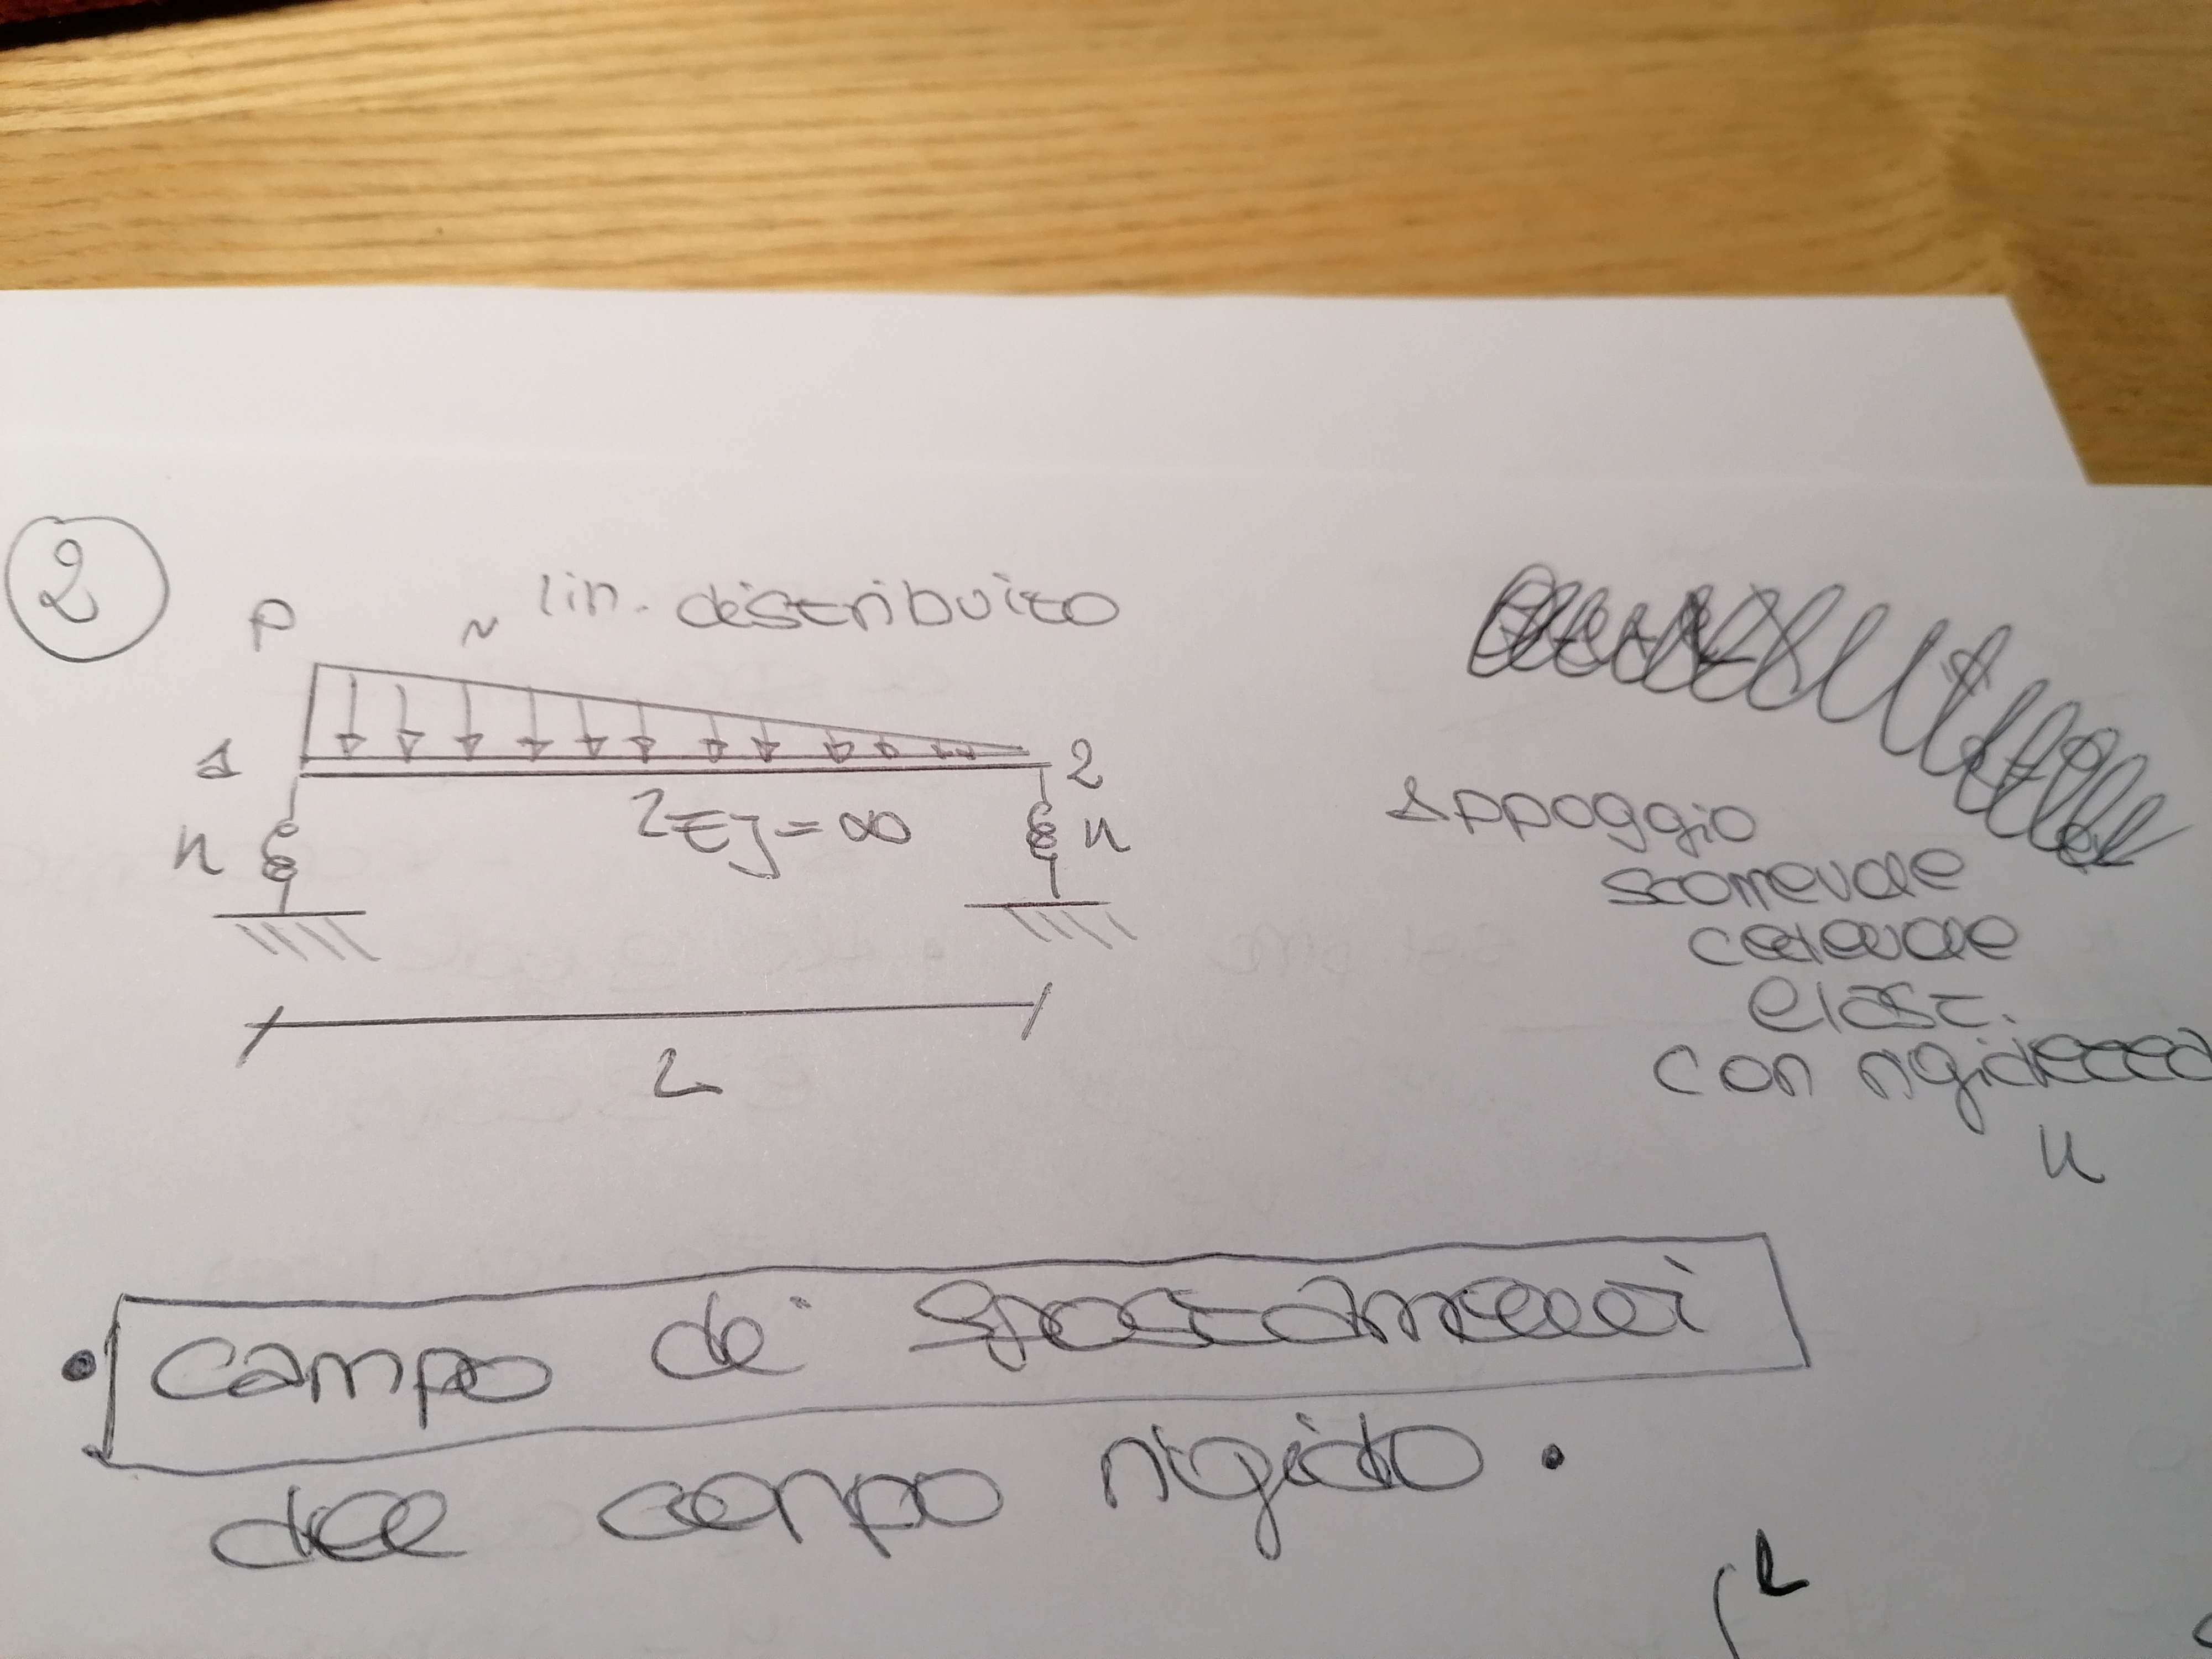 2
P ~ lin. distribuito
1 2
k 2EJ=∞ k
L
Appoggio
scorrevole
cedevole
elast.
con rigidezza
k
• campo di spostamenti
del corpo rigido •
∫ L